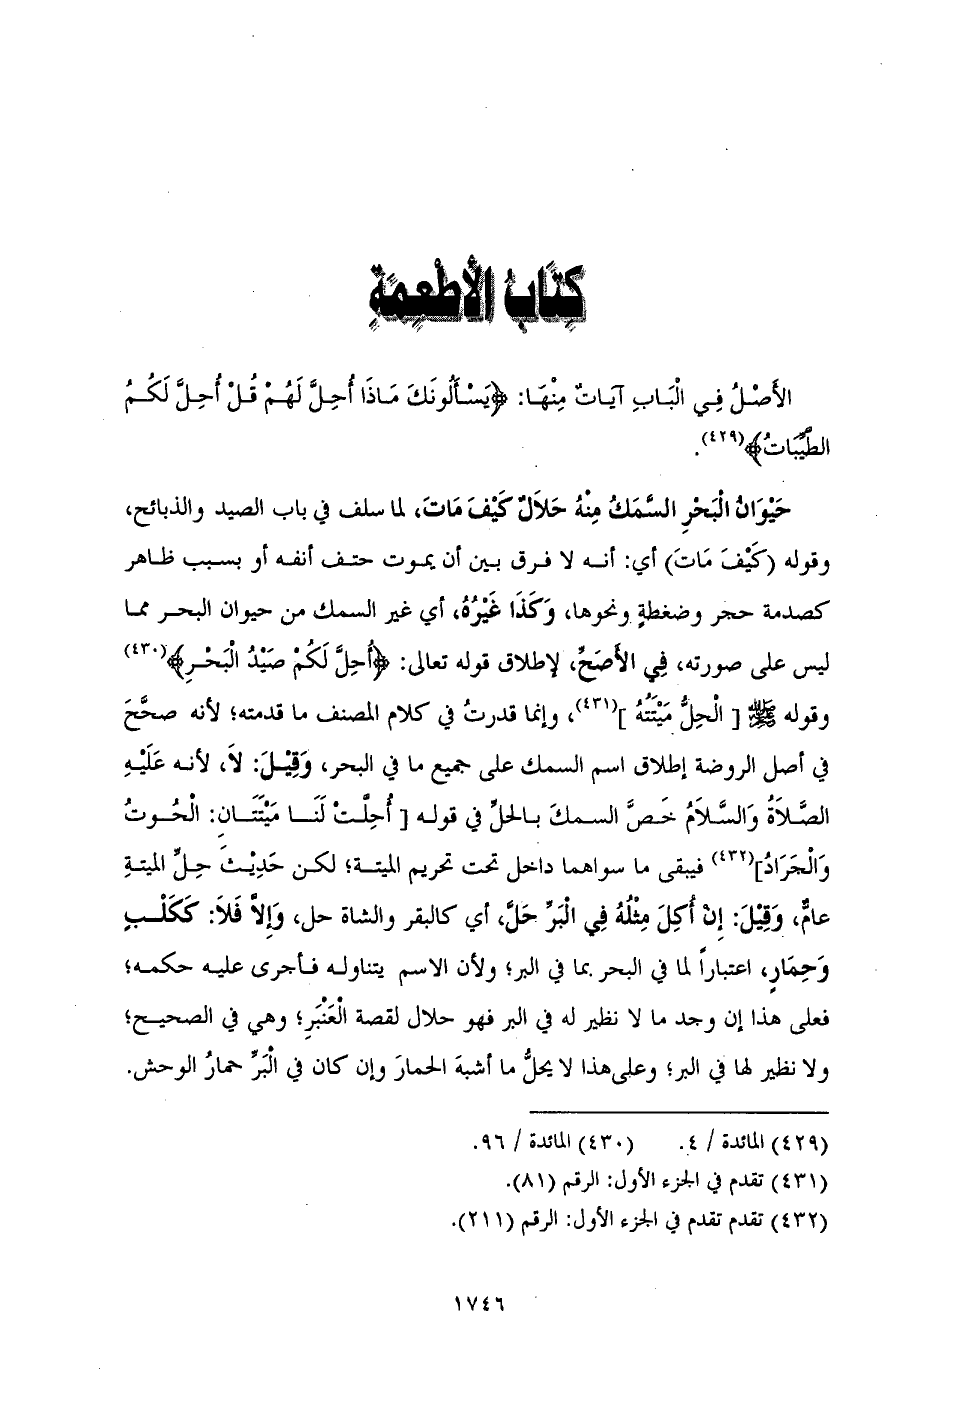 كِتَابُ الأَطْعِمَةِ
الأَصْلُ فِي الْبَابِ آيَاتٌ مِنْهَا: ﴿يَسْأَلُونَكَ مَاذَا أُحِلَّ لَهُمْ قُلْ أُحِلَّ لَكُمُ
الطَّيِّبَاتُ﴾(٤٢٩).
حَيْوَانُ الْبَحْرِ السَّمَكُ مِنْهُ حَلَالٌ كَيْفَ مَاتَ، لما سلف في باب الصيد والذبائح،
وقوله (كَيْفَ مَاتَ) أي: أنه لا فرق بين أن يموت حتف أنفه أو بسبب ظاهر
كصدمة حجر وضغطةٍ ونحوها، وَكَذَا غَيْرُهُ، أي غير السمك من حيوان البحر مما
ليس على صورته، فِي الأَصَحِّ، لإطلاق قوله تعالى: ﴿أُحِلَّ لَكُمْ صَيْدُ الْبَحْرِ﴾(٤٣٠)
وقوله ﷺ [ الْحِلُّ مَيْتَتُهُ ](٤٣١)، وإنما قدرتُ في كلام المصنف ما قدمته؛ لأنه صحَّحَ
في أصل الروضة إطلاق اسم السمك على جميع ما في البحر، وَقِيْلَ: لاَ، لأنه عَلَيْهِ
الصَّلاَةُ وَالسَّلاَمُ خَصَّ السمكَ بالحلِّ في قوله [ أُحِلَّتْ لَنَا مَيْتَتَانِ: الْحُوتُ
وَالْجَرَادُ](٤٣٢) فيبقى ما سواهما داخل تحت تحريم الميتة؛ لكن حَدِيْثَ حِلِّ الميتةِ
عامٌّ، وَقِيْلَ: إِنْ أُكِلَ مِثْلُهُ فِي الْبَرِّ حَلَّ، أي كالبقر والشاة حل، وَإِلاَّ فَلاَ: كَكَلْبٍ
وَحِمَارٍ، اعتباراً لما في البحر بما في البر؛ ولأن الاسم يتناوله فأجرى عليه حكمه؛
فعلى هذا إن وجد ما لا نظير له في البر فهو حلال لقصة الْعَنْبَرِ؛ وهي في الصحيح؛
ولا نظير لها في البر؛ وعلى هذا لا يحلُّ ما أشبهَ الحمارَ وإن كان في الْبَرِّ حمارُ الوحش.
(٤٢٩) المائدة / ٤. (٤٣٠) المائدة / ٩٦.
(٤٣١) تقدم في الجزء الأول: الرقم (٨١).
(٤٣٢) تقدم تقدم في الجزء الأول: الرقم (٢١١).
١٧٤٦